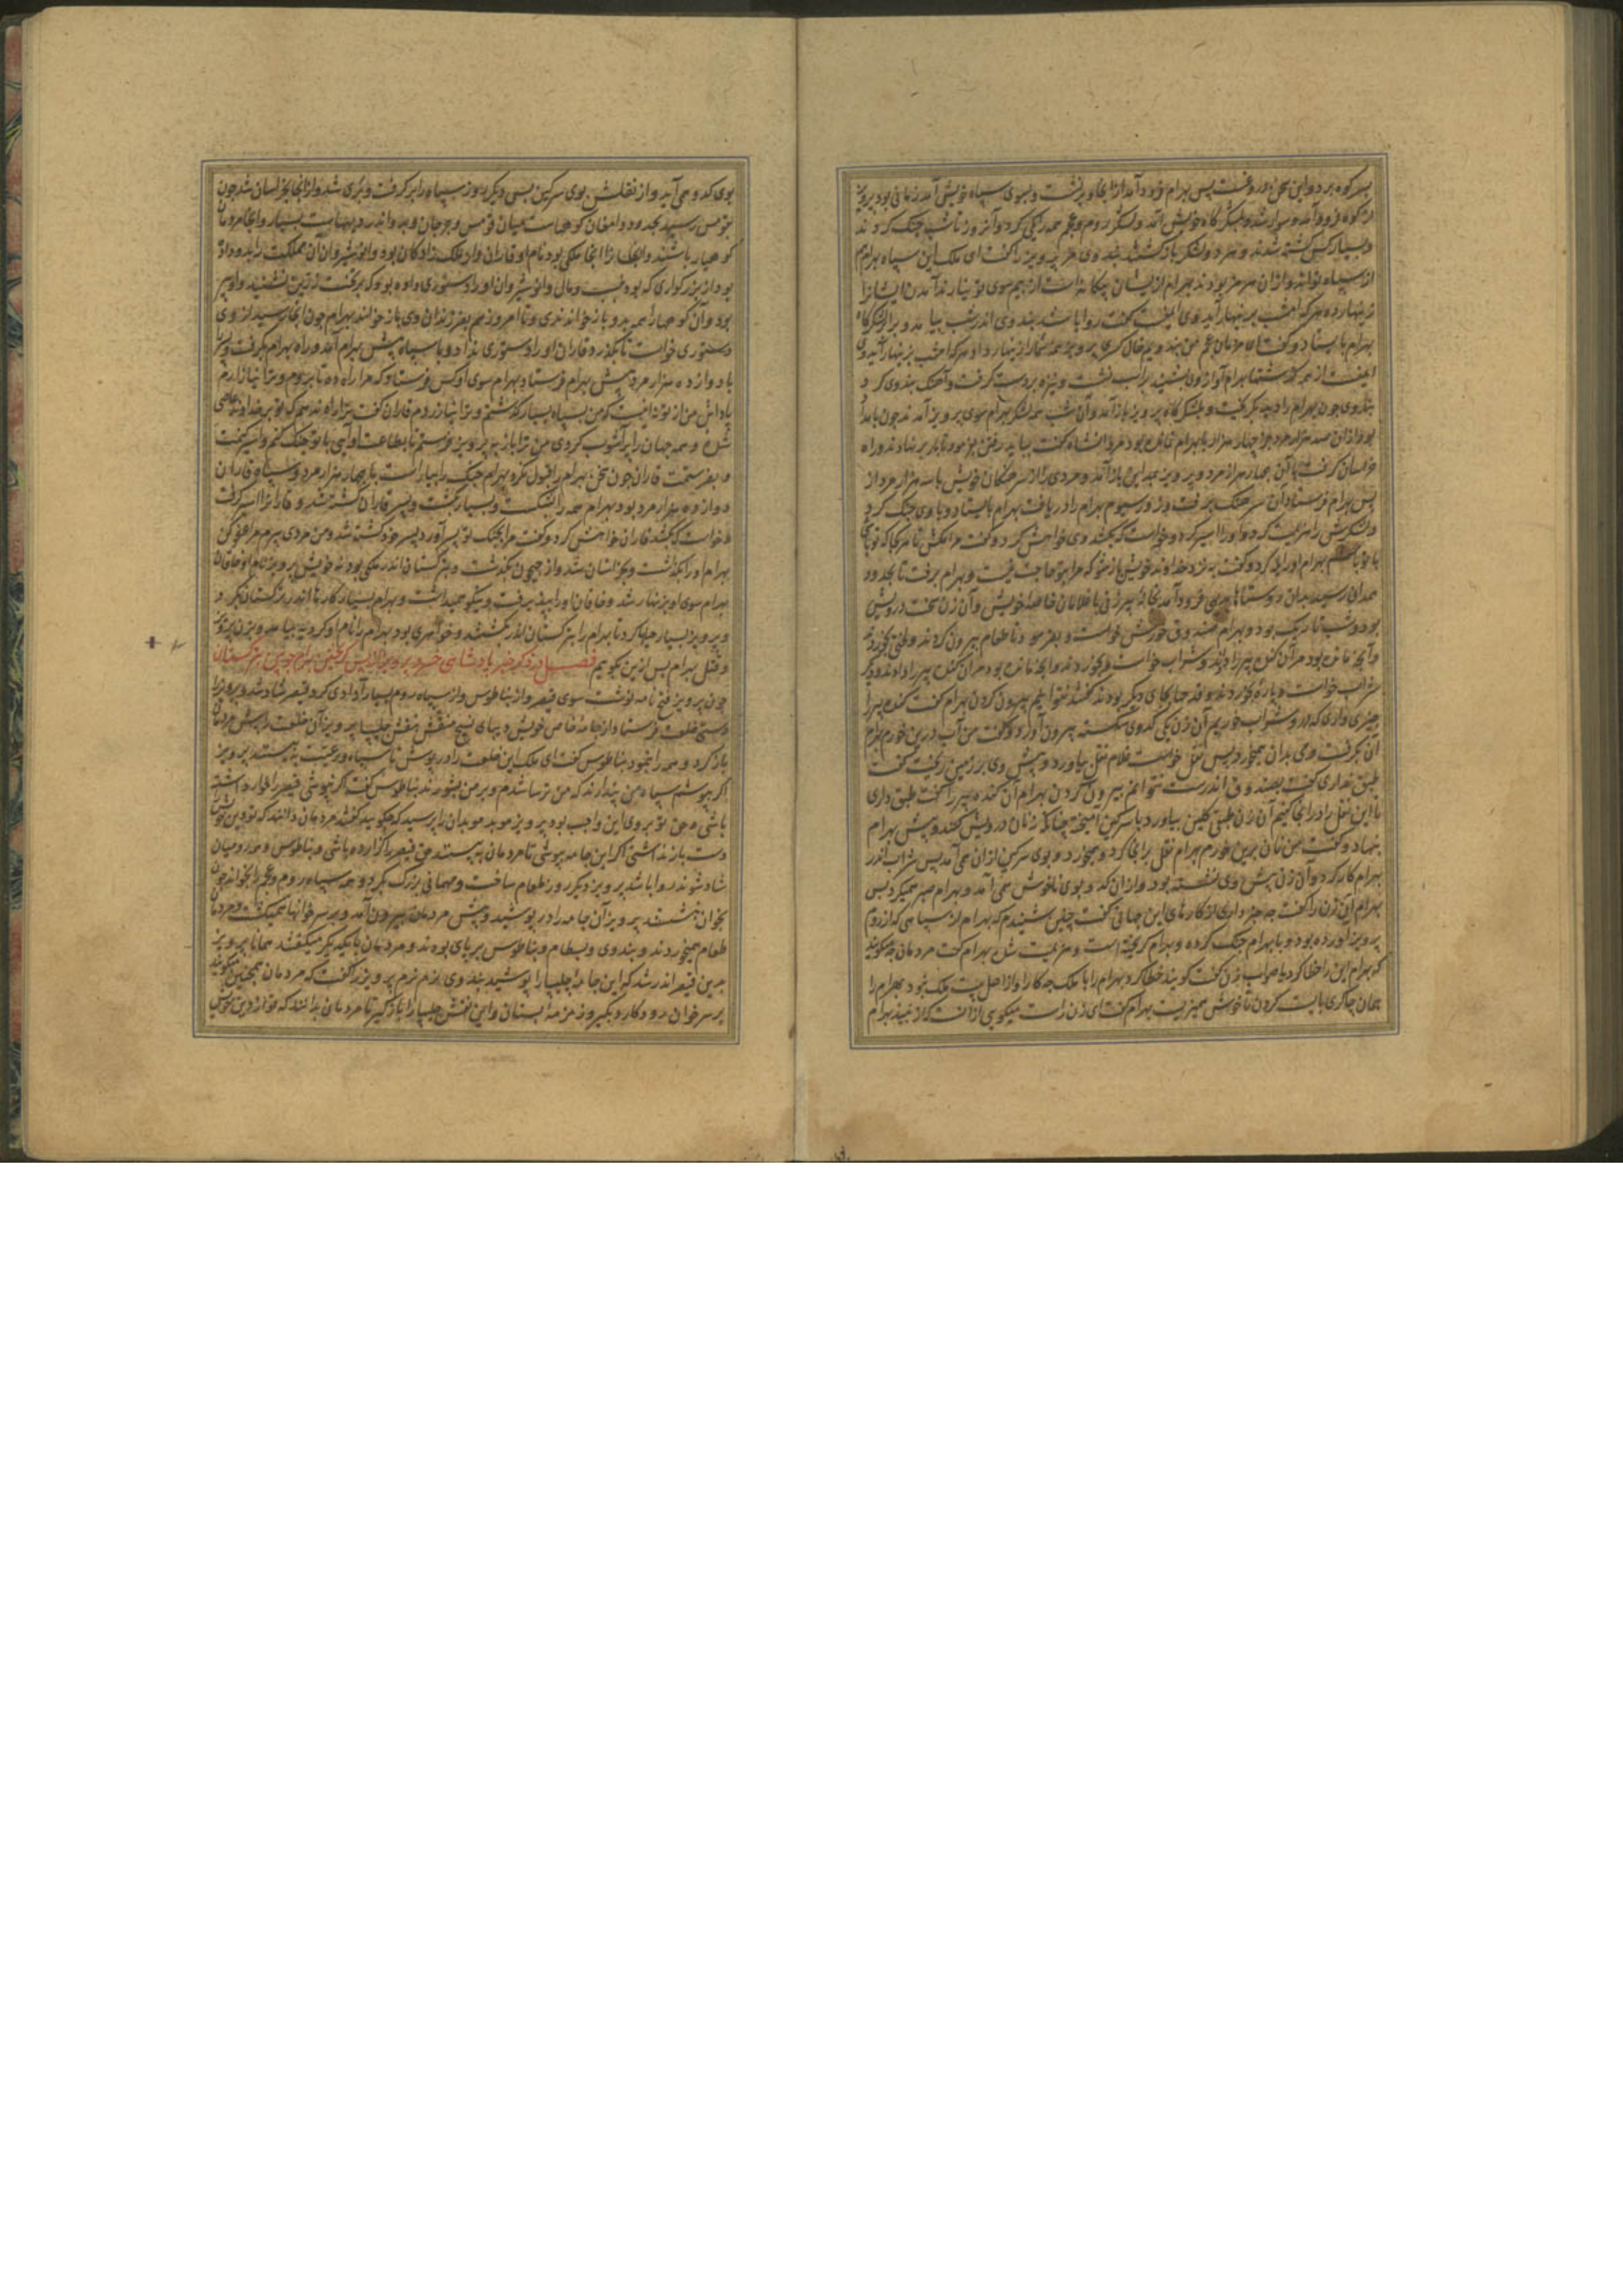 بسر کوه برد و این سخن دروغست پس بهرام فرود آمد از انجا و برنشست و بسوی سپاه خویش آمد زمانی بود پرویز
از کوه فرو آمد و سوار شد و بلشکر گاه خویش آمد و لشکر روم و عجم همه یکی کرد و آنروز تا شب جنک کردند
و بسیار کس کشته شدند و هر دو لشکر باز کشتند بندوی مر پرویز را گفت ای ملک این سپاه بهرام هم
از سپاه تواند و از آن هرمز بودند بهرام از ایشان بیکانه است از بیم سوی تو نیارند آمدن ایشانرا
زینهار ده هر که امشب بزینهار آید وی ایمنست گفت روا باشد بندوی اندر شب بیامد و برابر لشکرگاه
بهرام بایستاد و گفت ای مردمان عجم من بندویم خال کسری پرویز همه شما را زینهار داد هر که امشب بزینهار آید وی
ایمنست از همه گذشتها بهرام آواز وی بشنید براسب نشست و نیزه بردست گرفت و آهنک بندوی کرد
بندوی چون بهرام را دید بگریخت و بلشکرگاه پرویز باز آمد و آن شب همه لشکر بهرام سوی پرویز آمدند چون بامداد
بود از آن صد هزار مرد جز چهار هزار با بهرام نمانده بود مردانشاه گفت بباید رفتن بفرمود تا بار برنهادند و راه
خراسان گرفت با آن چهار هزار مرد و پرویز بمداین باز آمد و مردی را از سرهنکان خویش با سه هزار مرد از
پس بهرام فرستاد آن سرهنک برفت و روز سیوم بهرام را دریافت بهرام بایستاد و با وی جنک کرد
و لشکرش را هزیمت کرد و او را اسیر کرد و خواست که بکشد وی خواهش کرد و گفت مرا مکش تا هر کجا که تو باشی
با تو باشم بهرام او را یله کرد و گفت بنزد خداوند خویش باز شو که مرا بتو حاجت نیست و بهرام برفت تا بحدود
همدان رسید بدان روستاها بدهی فرود آمد بخانه پیرزنی با غلامان خاصه خویش و آن زن سخت درویش
بود و شب تاریک بود و بهرام صندوق خورش خواست و بفرمود تا طعام بیرون کردند و لختی بخوردند
و آنچه مانده بود مر آن گنده پیر را دادند و شراب خواست و بخوردند و آنچه مانده بود مر آن گنده پیر را دادند و دیگر
شراب خواست و پاره بخوردند و قدحها بجای دیگر بودند گفتند نتوانیم بیرون کردن بهرام گفت گنده پیر را
چیزی داری که در او شراب خوریم آن زن یکی کدوی شکسته بیرون آورد و گفت من آب درین خورم بهرام
آن بگرفت و می بدان همیخورد پس نقل خواست غلام نقل بیاورد و پیش وی بر زمین ریخت گفت
طبق نداری گفت بصندوق اندرست نتوانم بیرون آوردن بهرام آن گنده پیر را گفت طبق داری
تا این نقل را در آنجا کنیم آن زن طبقی گلین بیاورد با سرکین آمیخته چنانکه زنان درویش کنند و پیش بهرام
بنهاد و گفت من نان برین خورم بهرام نقل بر آنجا کرد و میخورد و بوی سرکین از آن همی آمد پس شراب اندر
بهرام کار کرد و آن زن پیش وی نشسته بود و از آن کدو بوی ناخوش همی آمد و بهرام صبر همیکرد پس
بهرام این زن را گفت چه خبر داری از کارهای این جهانی گفت چنین شنیدم که بهرام از سپاهی که از روم
پرویز آورده بود و با بهرام جنک کرده و بهرام گریخته است و هزیمت شده بهرام گفت مردمان چه میگویند
که بهرام این را خطا کرد یا صواب زن گفت گویند خطا کرد بهرام را با ملک چه کار او از اهل بیت ملک نبود بهرام را
همان چاکری بایست کردن تا خوش همیزیست بهرام گفت ای زن راست میگویی از آنست که از نبیذ بهرام
بوی کدو همی آید و از نقلش بوی سرکین پس دیگر روز سپاه را برگرفت و بری شد و از انجا بخراسان شد چون
بقومس رسید بحدود دامغان کوههاست میان قومس و جرجان و بدو اندر دیههاست بسیار و آنجا مردمان
کوهیار باشند و آنجا ملکی بود نام او قارن و او ملک زادکان بود و انوشیروان آن مملکت را بدو داده
بود از بزرگواری که بودش و مال و انوشیروان او را دستوری داده بود که بر تخت زرین نشیند و او پیر
بود و آن کوهها را همه بدو باز خوانندی و تا امروز هم بفرزندان وی باز خوانند بهرام چون آنجا رسید از وی
دستوری خواست تا بگذرد قارن او را دستوری نداد و با سپاه پیش بهرام آمد و راه بهرام بگرفت و پسر را
با دوازده هزار مرد پیش بهرام فرستاد بهرام سوی او کس فرستاد که مرا راه ده تا بروم و ترا نیازارم
پاداش من از تو نه اینست که من بسپاه بسیار گذشتم و ترا نیازردم قارن گفت ترا راه ندهم که تو بر خداوند عاصی
شده و همه جهان را پر آشوب کردی من ترا باز پس پرویز فرستم تا بطاعت او آیی یا تو جنک کنم و اسیر کنمت
و بفرستمت قارن چون سخن بهرام را قبول نکرد بهرام جنک را بیاراست با چهار هزار مرد و سپاه قارن
دوازده هزار مرد بود بهرام همه را بشکست و بسیار بکشت و پسر قارن کشته شد و قارن را اسیر گرفت
و خواست که بکشد قارن خواهش کرد و گفت مرا بجنک تو پسر آورد پسر خود کشته شد و من مردی پیرم مرا عفو کن
بهرام او را بگذشت و بخراسان شد و از جیحون بگذشت و بترکستان اندر ملکی بود نه خویش پرویز نام او خاقان
بهرام سوی او بزینهار شد و خاقان او را بپذیرفت و نیکو همیداشت و بهرام بسیار کارها اندر ترکستان بکرد
و پرویز بسیار حیلها کرد تا بهرام را بترکستان اندر بکشتند و خواهری بود بهرام را نام او کردیه بیامد و بزن پرویز
و قتل بهرام پس ازین بگوییم فصل در ذکر خبر پادشاهی خسرو پرویز از پس گریختن بهرام چوبین بترکستان
چون پرویز فتح نامه نوشت سوی قیصر و از بناطوس و از سپاه روم بسیار آزادی کرد قیصر شاد شد و پرویز را
دستی خلعت فرستاد از جامه خاص خویش دیبای نسیج منقش بنقش چلیپا پرویز آن خلعت را پیش مردمان
باز کرد و همه را بنمود بناطوس گفت ای ملک این خلعت را در پوش تا سپاه و رعیت به بینند پرویز
اگر بپوشم سپاه من پندارند که من ترسا شدم و بر من بشورند بناطوس گفت اگر نپوشی قیصر را خوار داشته
باشی و حق تو بر وی این واجب بود پرویز موبد موبدان را پرسید که چگویید گفتند مردمان دانند که تو دین خویش
دست باز نداشتی اگر این جامه بپوشی تا مردمان به بینند حق قیصر را گزارده باشی و بناطوس و همه رومیان
شاد شوند روا باشد پرویز دیگر روز طعام ساخت و مهمانی بزرگ بکرد و همه سپاه روم و عجم را بخواند چون
بخوان بنشستند پرویز آن جامه را در پوشید و پیش مردمان بیرون آمد و بر سر خوانها همیگشت و مردمان
طعام همیخوردند و بندوی و بسطام و بناطوس بر پای بودند و مردمان با یکدیگر میگفتند همانا پرویز
بدین قیصر اندر شد که این جامه چلیپا را پوشید بندوی بزمزم پرویز را گفت که مردمان همچنین میگویند
بر سر خوان رو و کارد بگیر و زمزمه بستان و این نقش چلیپا را باز گیر تا مردمان بدانند که تو از دین خویش